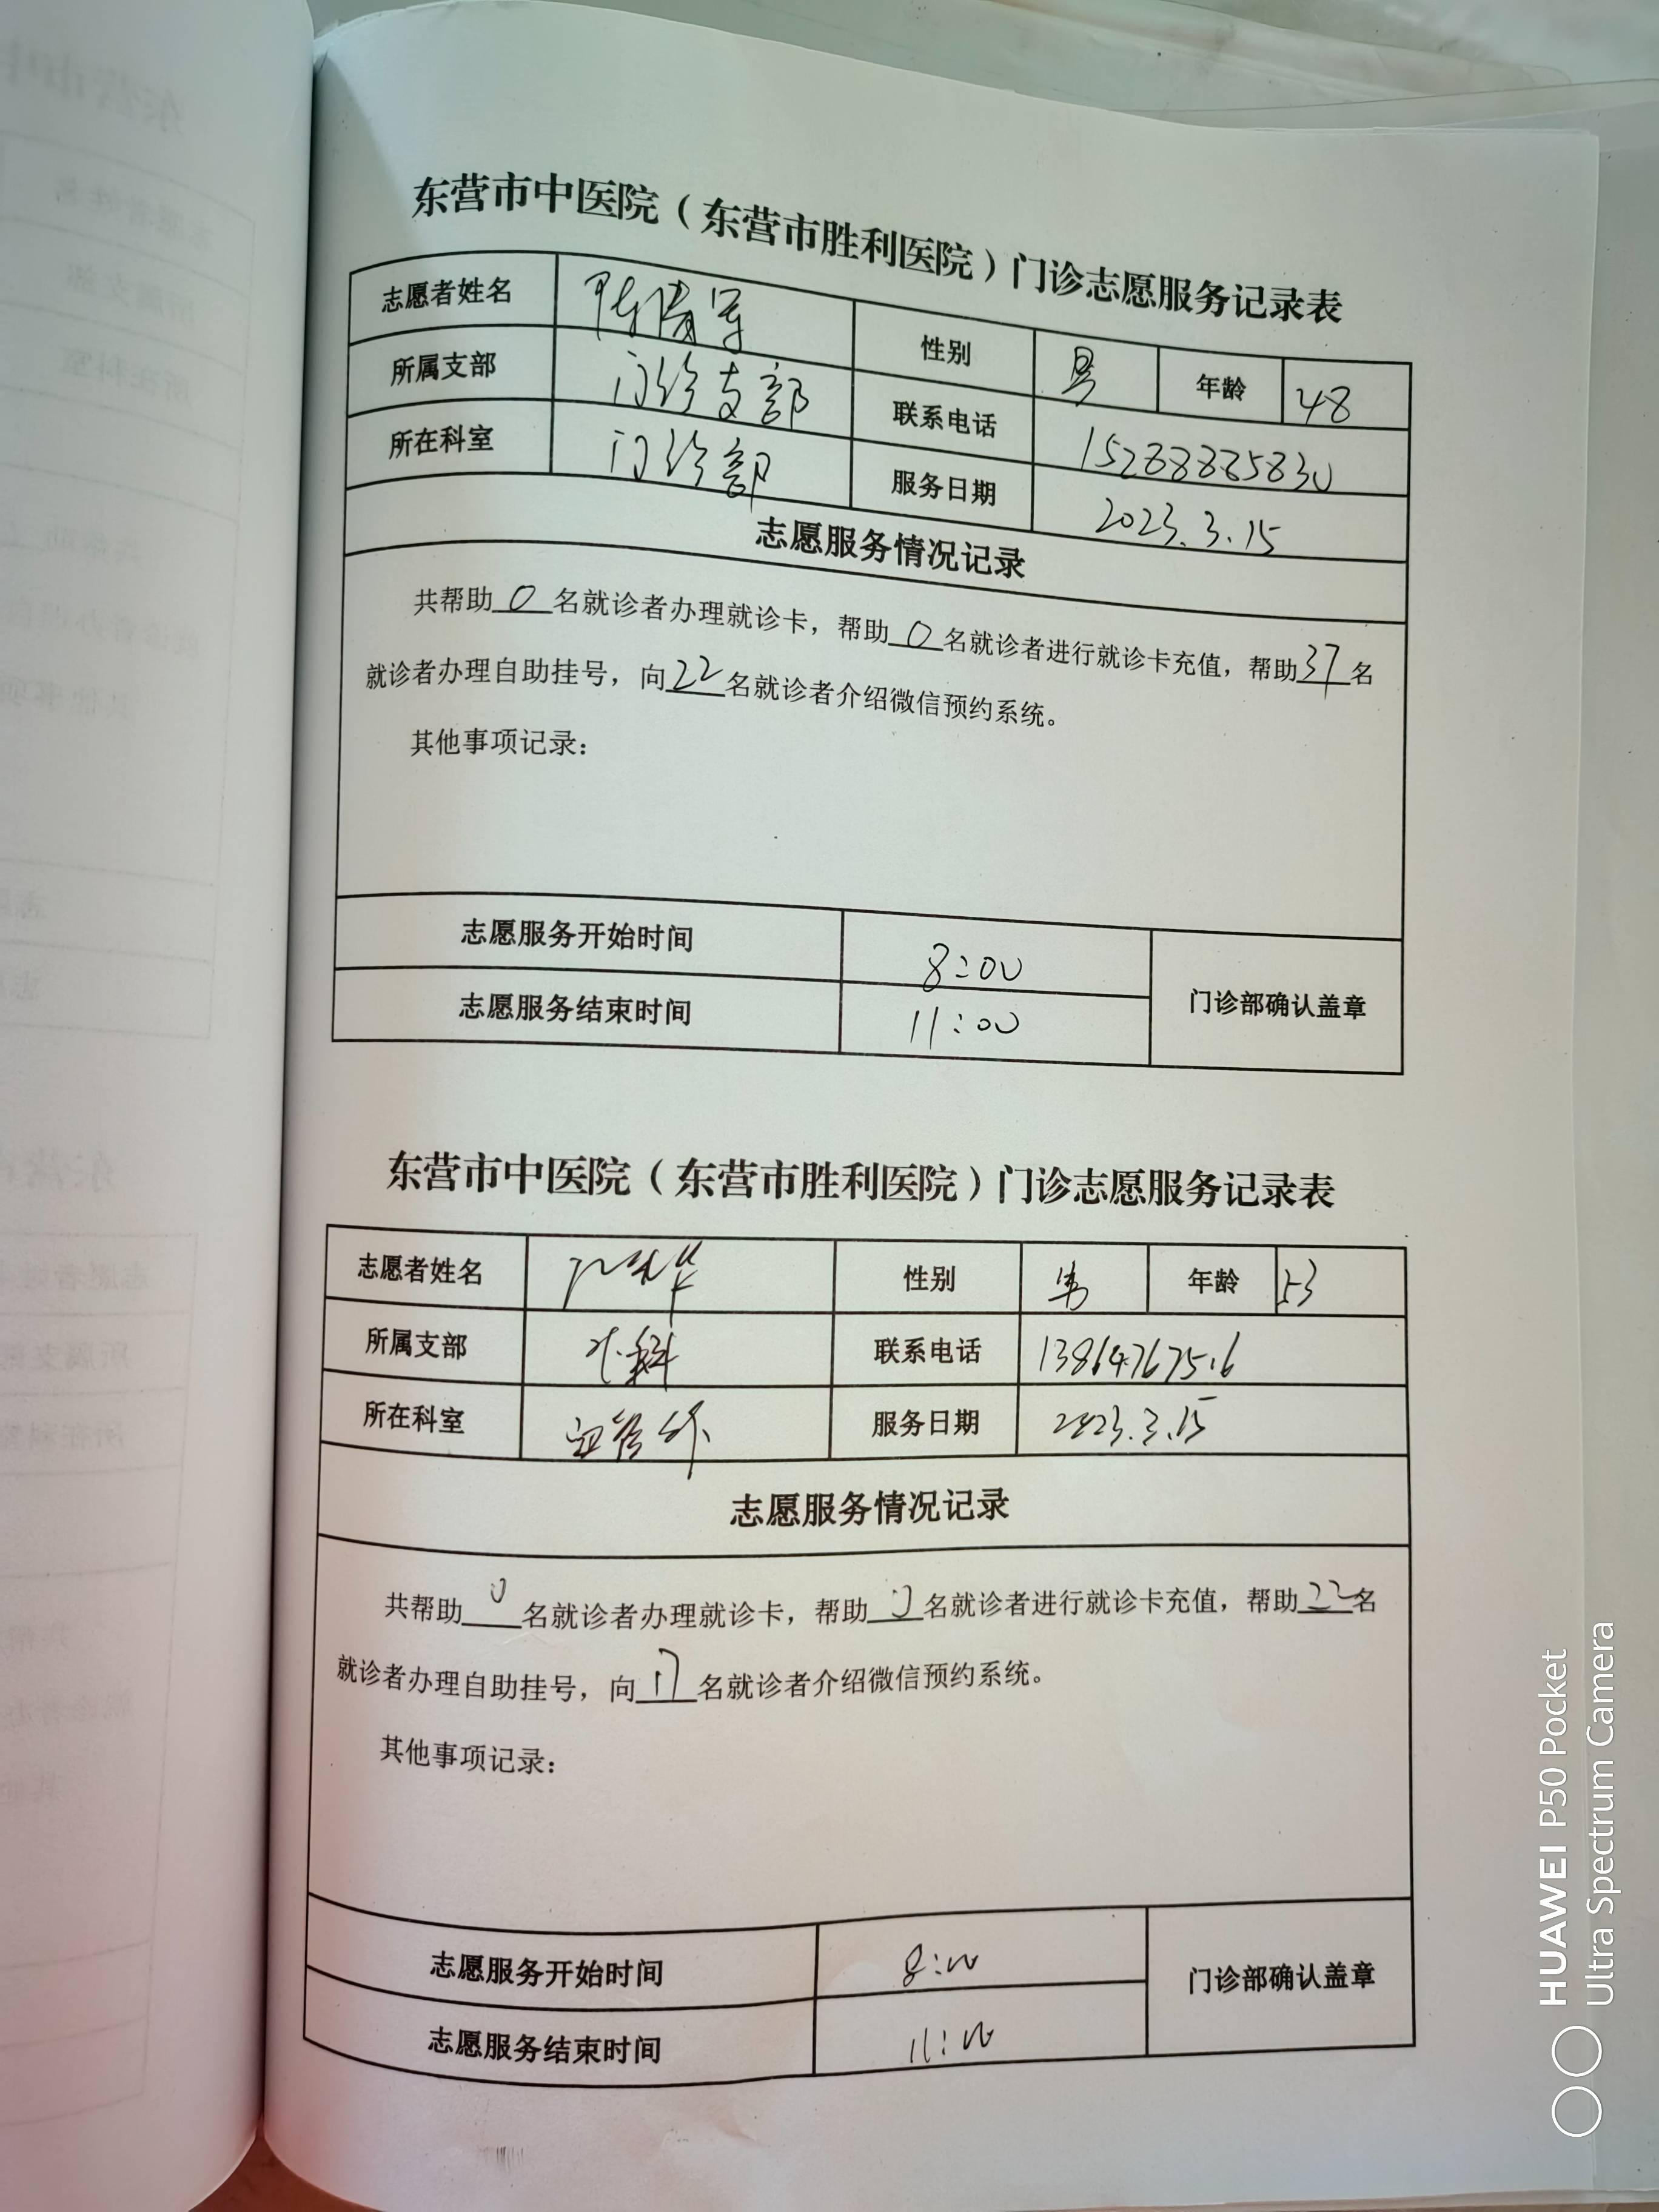 东营市中医院（东营市胜利医院）门诊志愿服务记录表
志愿者姓名 性别 男 年龄 48
所属支部 门诊支部 联系电话 15288885830
所在科室 门诊部 服务日期 2023.3.15
志愿服务情况记录
共帮助0名就诊者办理就诊卡，帮助0名就诊者进行就诊卡充值，帮助37名
就诊者办理自助挂号，向22名就诊者介绍微信预约系统。
其他事项记录：
志愿服务开始时间 8:00
门诊部确认盖章
志愿服务结束时间 11:00
东营市中医院（东营市胜利医院）门诊志愿服务记录表
志愿者姓名 性别 男 年龄 53
所属支部 外科 联系电话
所在科室 血管外 服务日期 2023.3.15
志愿服务情况记录
共帮助0名就诊者办理就诊卡，帮助0名就诊者进行就诊卡充值，帮助22名
就诊者办理自助挂号，向17名就诊者介绍微信预约系统。
其他事项记录：
志愿服务开始时间 8:00
门诊部确认盖章
志愿服务结束时间 11:00
HUAWEI P50 Pocket
Ultra Spectrum Camera